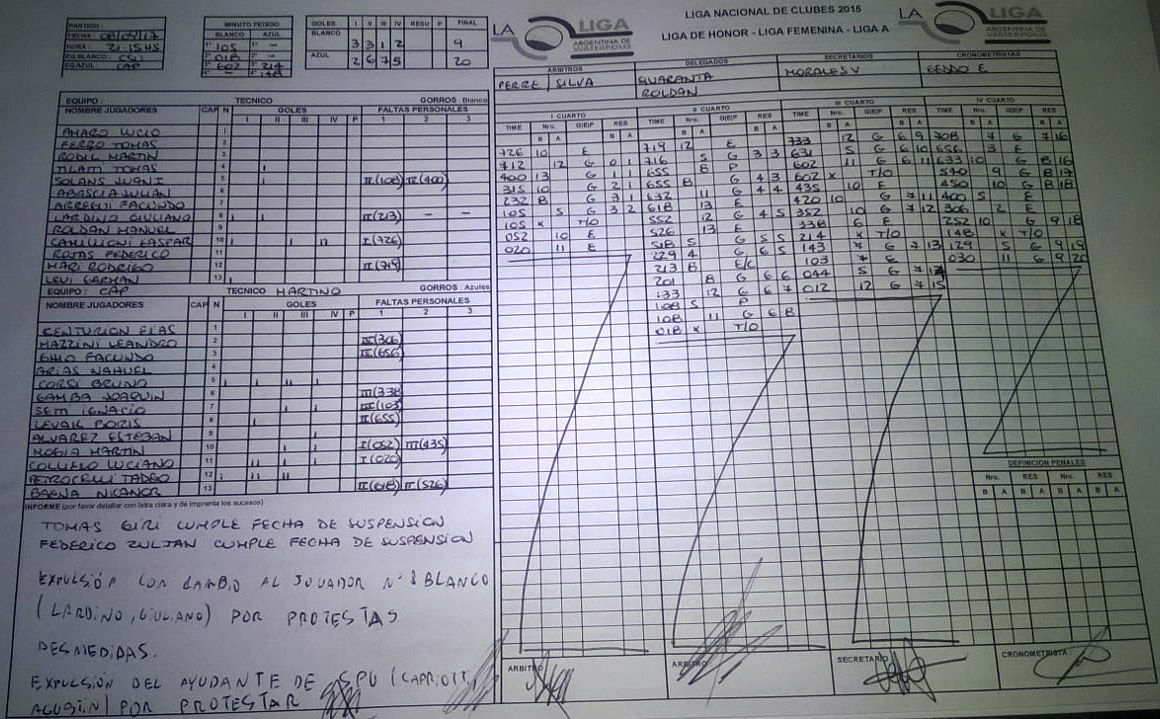 LIGA NACIONAL DE CLUBES 2015
LIGA DE HONOR - LIGA FEMENINA - LIGA A
LA LIGA ARGENTINA DE WATERPOLO
LA LIGA ARGENTINA DE WATERPOLO
PARTIDO:
FECHA:
HORA: 21:15 HS
EQ.BLANCO:
EQ.AZUL: CAP
MINUTO PEDIDO
BLANCO AZUL
1° 105 1° -
2° 018 2° -
3° 602 3° 214
4° - 4° 148
GOLES I II III IV RESU P FINAL
BLANCO 3 3 1 2 9
AZUL 2 6 7 5 20
ARBITROS DELEGADOS SECRETARIOS CRONOMETRISTAS
PERRE / SILVA QUARANTA MORALES V
ROLDAN
EQUIPO: TECNICO GORROS: Blanco
NOMBRE JUGADORES CAP N GOLES FALTAS PERSONALES
I II III IV P 1 2 3
AMARO LUCIO 1
FERRO TOMAS 2
RODIL MARTIN 3
TILATTI TOMAS 4
SOLANS JUANI 5 II(108) II(400)
ABASCIA JULIAN 6
ARREGUI FACUNDO 7
LARDINO GIULIANO 8 II(213) - -
ROLDAN MANUEL 9
CAMILLIONI GASPAR 10 I(726)
ROJAS FEDERICO 11
MARI RODRIGO 12 II(719)
LEVI GERMAN 13
EQUIPO: CAP TECNICO MARTINO GORROS: Azules
NOMBRE JUGADORES CAP N GOLES FALTAS PERSONALES
I II III IV P 1 2 3
CENTURION ELAS 1
MAZZINI LEANDRO 2 II(306)
GHIO FACUNDO 3 II(656)
ARIAS NAHUEL 4
CORSI BRUNO 5
GAMBA JOAQUIN 6 III(338)
SETTI IGNACIO 7 III(103)
LEVAK BORIS 8 II(655)
ALVAREZ ESTEBAN 9
MOGIA MARTIN 10 I(052) III(435)
COLLUFLO LUCIANO 11 I(020)
PETROCELLI TADEO 12
BAENA NICANOR 13 II(618) II(526)
INFORME (por favor detallar con letra clara y de imprenta los sucesos)
TOMAS GIRI CUMPLE FECHA DE SUSPENSION
FEDERICO ZULJAN CUMPLE FECHA DE SUSPENSION
EXPULSIÓN CON CAMBIO AL JUGADOR N°8 BLANCO
(LARDINO, GIULIANO) POR PROTESTAS
DESMEDIDAS.
EXPULSIÓN DEL AYUDANTE DE SPU (CAPRIOTTI,
AGUSTIN) POR PROTESTAR
I CUARTO
TIME Nro. G/E/P RES
B A B A
726 10 E
712 12 G 0 1
400 13 G 1 1
315 10 G 2 1
232 8 G 3 1
105 5 G 3 2
105 x T/O
052 10 E
020 11 E
II CUARTO
TIME Nro. G/E/P RES
B A B A
719 12 E
716 5 G 3 3
655 8 P
655 8 G 4 3
632 11 G 4 4
618 13 E
552 12 G 4 5
526 13 E
518 5 G 5 5
229 4 G 6 5
213 8 E/C
201 8 G 6 6
133 12 G 6 7
108 5 P
108 11 G 6 8
018 x T/O
III CUARTO
TIME Nro. G/E/P RES
B A B A
733 12 G 6 9
631 5 G 6 10
602 11 G 6 11
602 x T/O
435 10 E
420 10 G 7 11
352 10 G 7 12
338 6 E
214 x T/O
143 7 G 7 13
103 7 E
044 5 G 7 14
012 12 G 7 15
IV CUARTO
TIME Nro. G/E/P RES
B A B A
708 7 G 7 16
656 3 E
633 10 G 8 16
540 9 G 8 17
450 10 G 8 18
400 5 E
306 2 E
252 10 G 9 18
148 x T/O
129 5 G 9 19
030 11 G 9 20
DEFINICION PENALES
Nro. RES Nro. RES
B A B A B A B A
ARBITRO ARBITRO SECRETARIO CRONOMETRISTA: